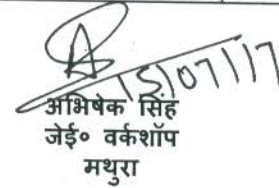 15/07/17
अभिषेक सिंह
जेई० वर्कशॉप
मथुरा